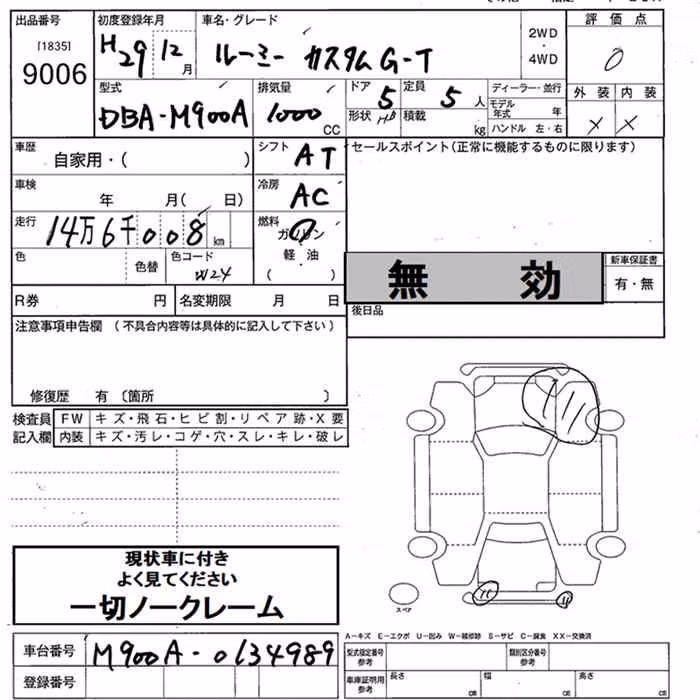 出品番号 初度登録年月 車名・グレード 評価点
[1835]
9006
H29 12月 ルーミー カスタムG-T 2WD・4WD 0
型式 排気量 ドア 定員 ディーラー・並行 外装 内装
DBA-M900A 1000CC 5 5人 モデル年式 年 × ×
形状 積載 kg ハンドル 左・右
車歴 シフト セールスポイント(正常に機能するものに限ります)
自家用・( ) AT
車検 冷房
年 月( 日) AC
走行 燃料
14万6千008km ガソリン
色 色替 色コード 軽油
W24 ( )
無効 新車保証書
有・無
R券 円 名変期限 月 日 後日品
注意事項申告欄(不具合内容等は具体的に記入して下さい)
修復歴 有〔箇所 〕
検査員 FW キズ・飛石・ヒビ割・リペア跡・X要
記入欄 内装 キズ・汚レ・コゲ・穴・スレ・キレ・破レ
現状車に付き
よく見てください
一切ノークレーム
スペア
A-キズ E-エクボ U-凹み W-補修跡 S-サビ C-腐食 XX-交換済
車台番号 M900A-0134989
登録番号
型式指定番号 参考 類別区分番号 参考
車庫証明用 参考 長さ cm 幅 cm 高さ cm